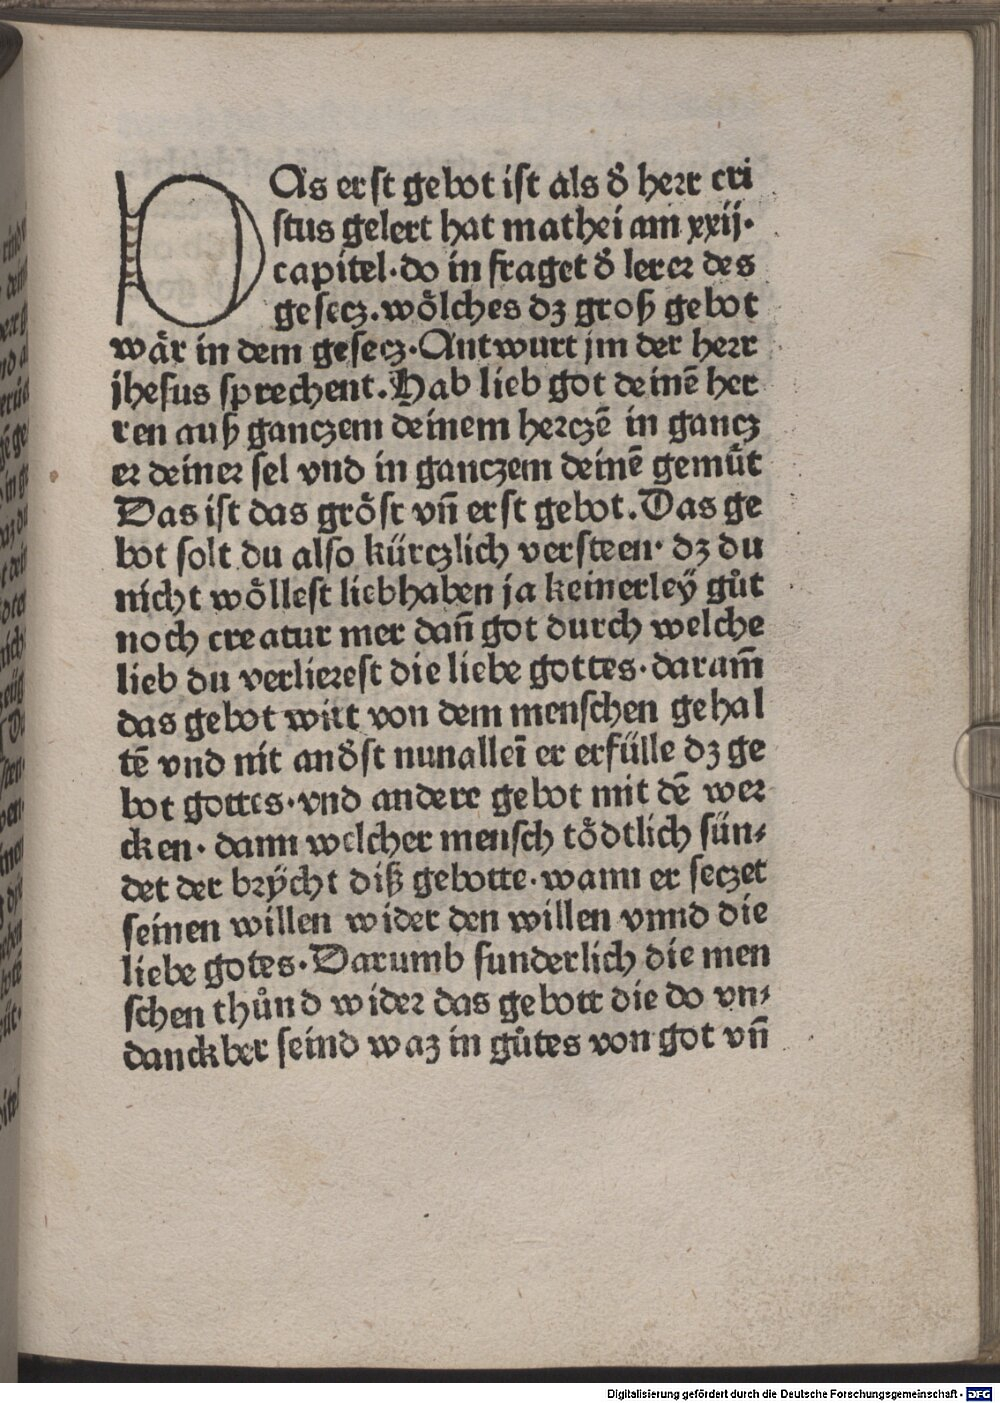 DAs erst gebot ist als d̕ herr cri
stus gelert hat mathei am xxij.
capitel·do in fraget d̕ lerer des
gesecz.wôlches dz groß gebot
wâr in dem gesecz·Antwurt jm der herr
jhesus sprechent.Hab lieb got deinē her
ren auß ganczem deinem herczē in gancz
er deiner sel vnd in ganczem deinē gemüt
Das ist das grôst vn̄ erst gebot.Das ge
bot solt du also kürczlich versteen· dz du
nicht wôllest liebhaben ja keinerleÿ gůt
noch creatur mer dan̄ got durch welche
lieb du verlierest die liebe gottes·daram̄
das gebot wirt von dem menschen gehal
tē vnd nit and̕st nunalleī er erfülle dz ge
bot gottes·vnd andere gebot mit dē wer
cken· dann welcher mensch tôdtlich sün⸗
det der brÿcht diß gebotte·wann er seczet
seinen willen wider den willen vnnd die
liebe gotes·Darumb sunderlich die men
schen thůnd wider das gebott die do vn⸗
danckber seind waz in gůtes von got vn̄
Digitalisierung gefördert durch die Deutsche Forschungsgemeinschaft · DFG